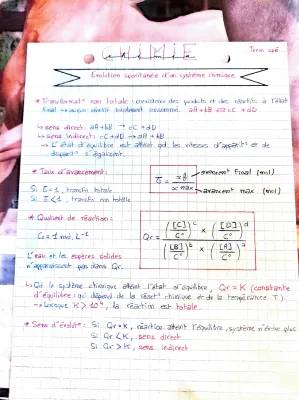 CHIMIE
Term spé
Evolution spontanée d'un système chimique
* Transformat° non totale : coexistence des produits et des réactifs à l'état
final → aucun réactif totalement consommé. aA + bB ⇌ cC + dD
↳ sens direct : aA + bB → cC + dD
↳ sens indirect : cC + dD → aA + bB
↳ L'état d'équilibre est atteint qd les vitesses d'apparit° et de
disparit° s'égalisent.
* Taux d'avancement :
τ = xf / xmax
→ avancement final (mol)
→ avancement max (mol)
Si τ = 1, transfo totale
Si τ < 1, transfo non totale
* Quotient de réaction :
C° = 1 mol.L⁻¹
Qr = ([C]/C°)^c × ([D]/C°)^d / ([B]/C°)^b × ([A]/C°)^a
L'eau et les espèces solides
n'apparaissent pas dans Qr.
↳ Qd le système chimique atteint l'état d'équilibre, Qr = K (constante
d'équilibre : qui dépend de la réact° chimique et de la température T)
↳ Lorsque K > 10⁴, la réaction est totale.
* Sens d'évolut° : Si Qr = K, réaction atteint l'équilibre, système n'évolue plus
Si Qr < K, sens direct
Si Qr > K, sens indirect